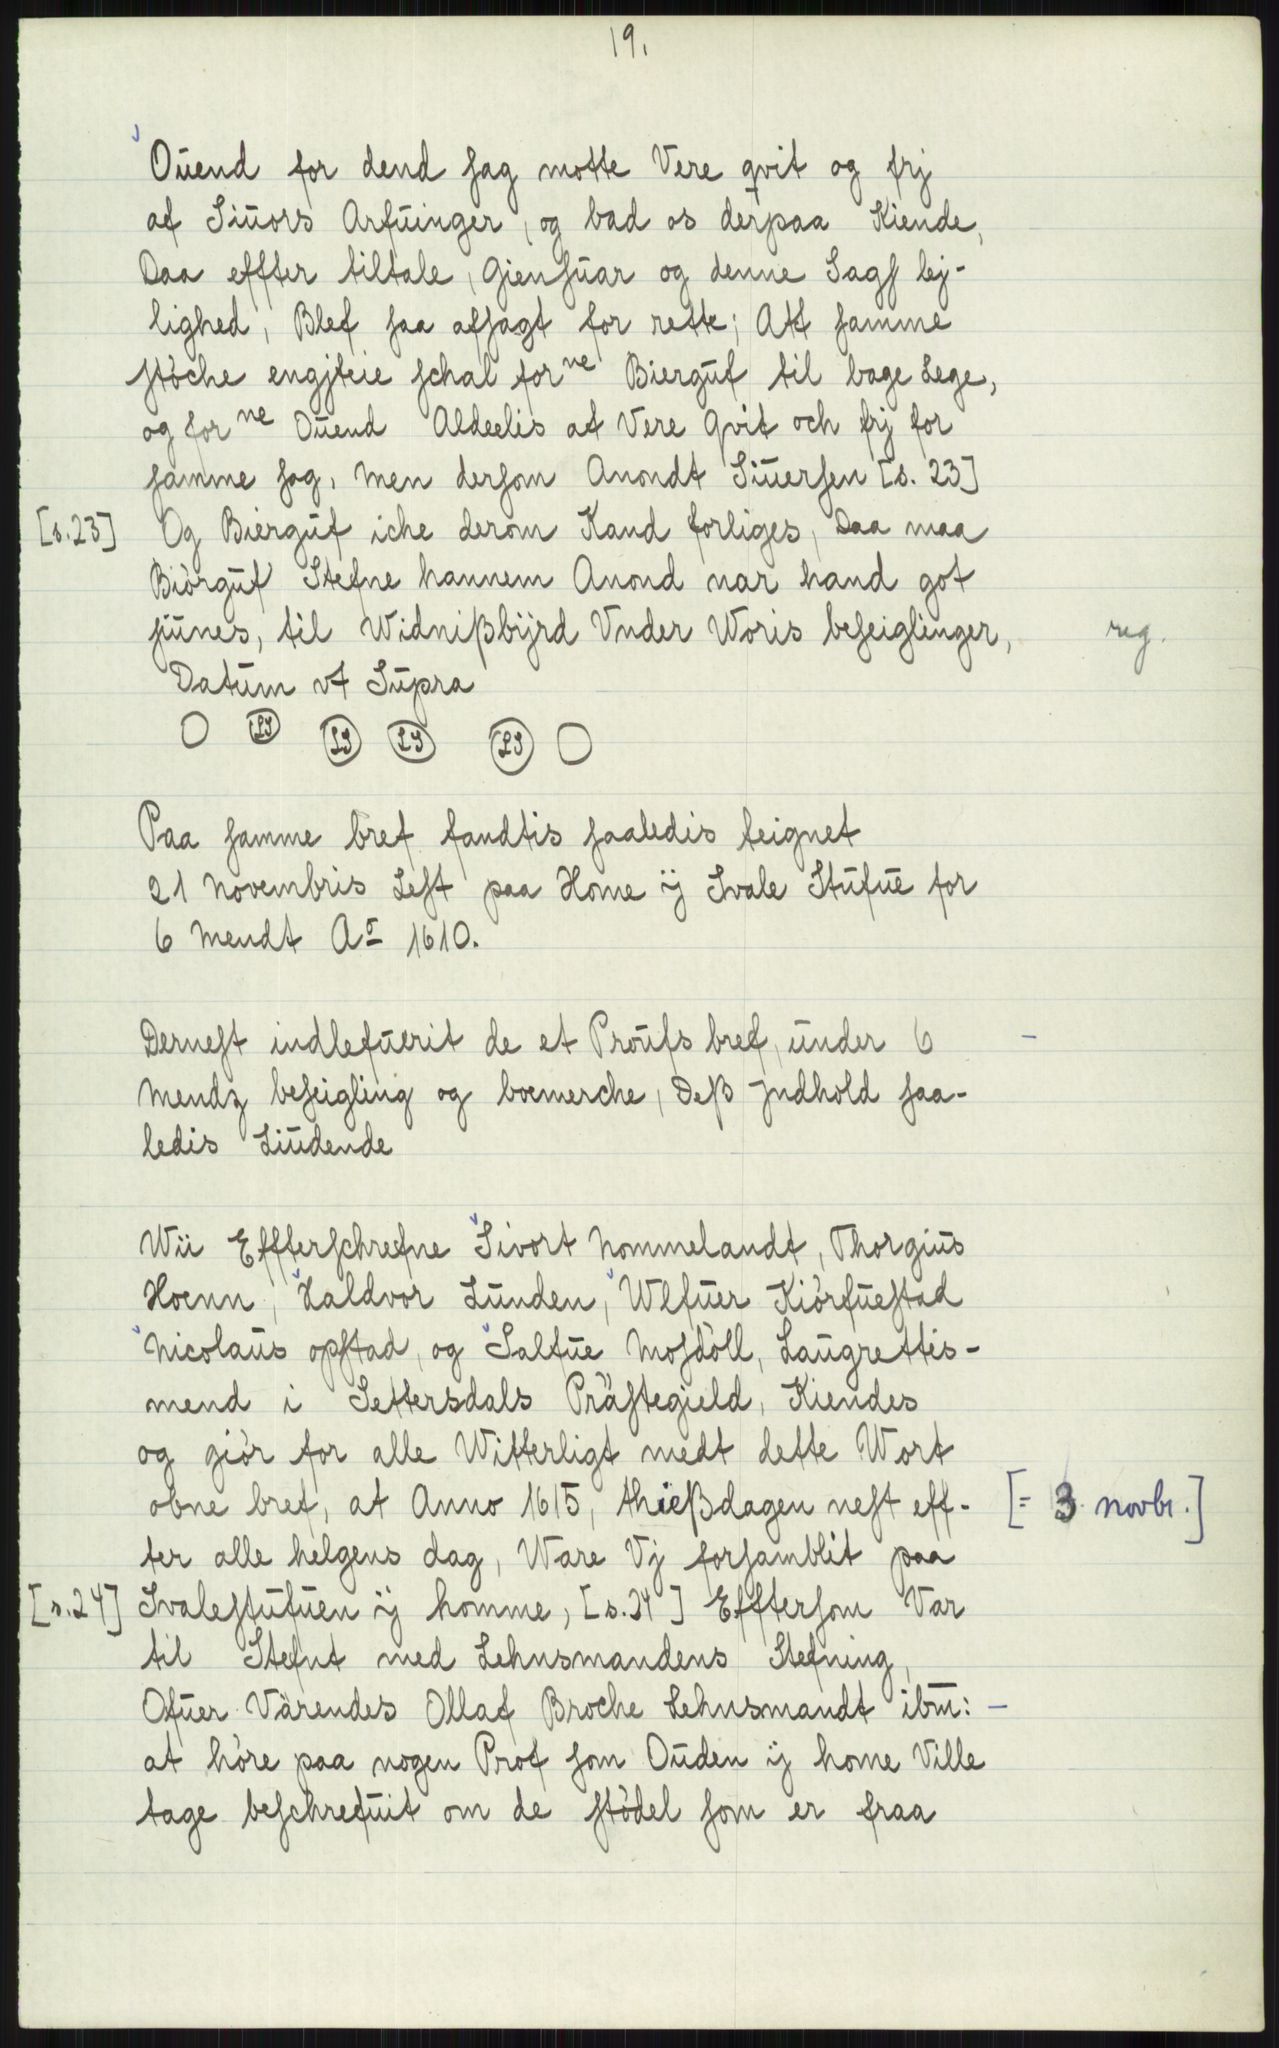 19.
Oŭend for dend sag motte Vere qvit og frj
af Siŭors Arfŭinger, og bad os derpaa Kiende,
Daa effter tiltale, Giensŭar og denne Sags lej-
lighed, Blef saa afsagt for rette; Att samme
støche engjteie schal forne Biergŭf til bage Lege,
og forne Oŭend Aldeelis at Vere Qvit och frj for
samme sag, men dersom Anondt Siŭersen [s. 23]
[s.23] Og Biergŭf iche derom Kand forliges, Daa maa
Biørgŭf Stefne hannem Anond nar hand got
siŭnes, til Widnißbijrd Vnder Woris beseiglinger, reg.
Datŭm vt Sŭpra
LS LS LS LS
Paa samme bref fandtis saaledis teignet
21 Novembris Lest paa Home ij Svale Stŭfŭe for
6 Mendt Ao 1610.
Dernest indlefŭerit de et Proŭfs bref, ŭnder 6 -
Mendz beseigling og boemerche, Deß Jndhold saa-
ledis Liŭdende
Wii Effterschrefne Sivort Nommelandt, Thorgiŭs
Hoenn, Haldvor Lŭnden, Wlfŭer Kiørfŭestad
Nicolaŭs opstad, og Salfŭe Mosdøll, Laŭgrettis-
mend i Settersdals Präestegield, Kiendes
og giør for alle Witterligt medt dette Wort
obne bref, at Anno 1615, thießdagen nest eff- [= 3 novbr.]
ter alle helgens dag, Ware Vj forsamblit paa
[s.24] Svalestŭfŭen ij homme, [s.24] Efftersom Var
til Stefnt med Lehnsmandens Stefning,
Ofŭer Värendes Ollaf Broche Lehnsmandt ibm: -
at høre paa nogen Prof som Oŭden ij home Ville
tage beschrefŭit om de stødel som er fraa